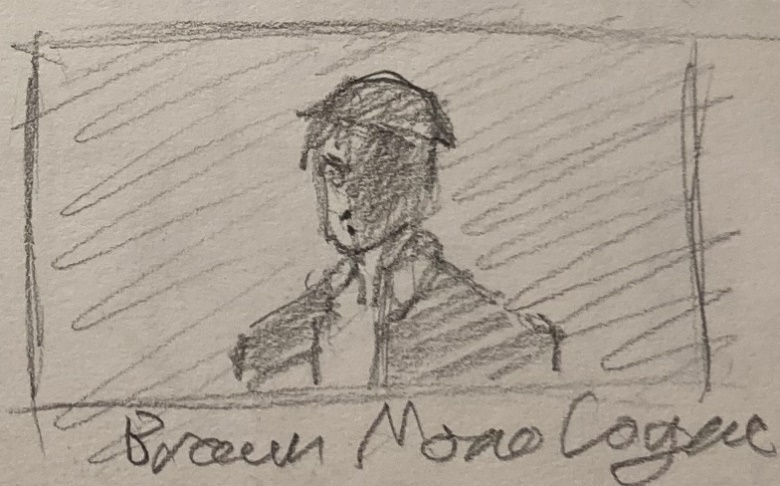 Brown Monologue